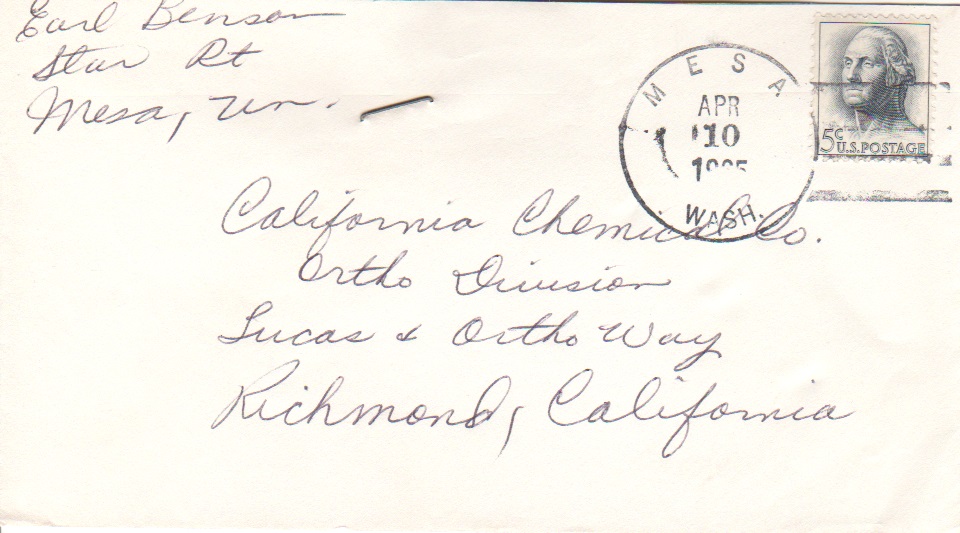 Earl Benson
Star Rt
Mesa, Wn.
MESA
APR
10
WASH.
5¢ U.S. POSTAGE
California Chemical Co.
Ortho Division
Lucas & Ortho Way
Richmond, California